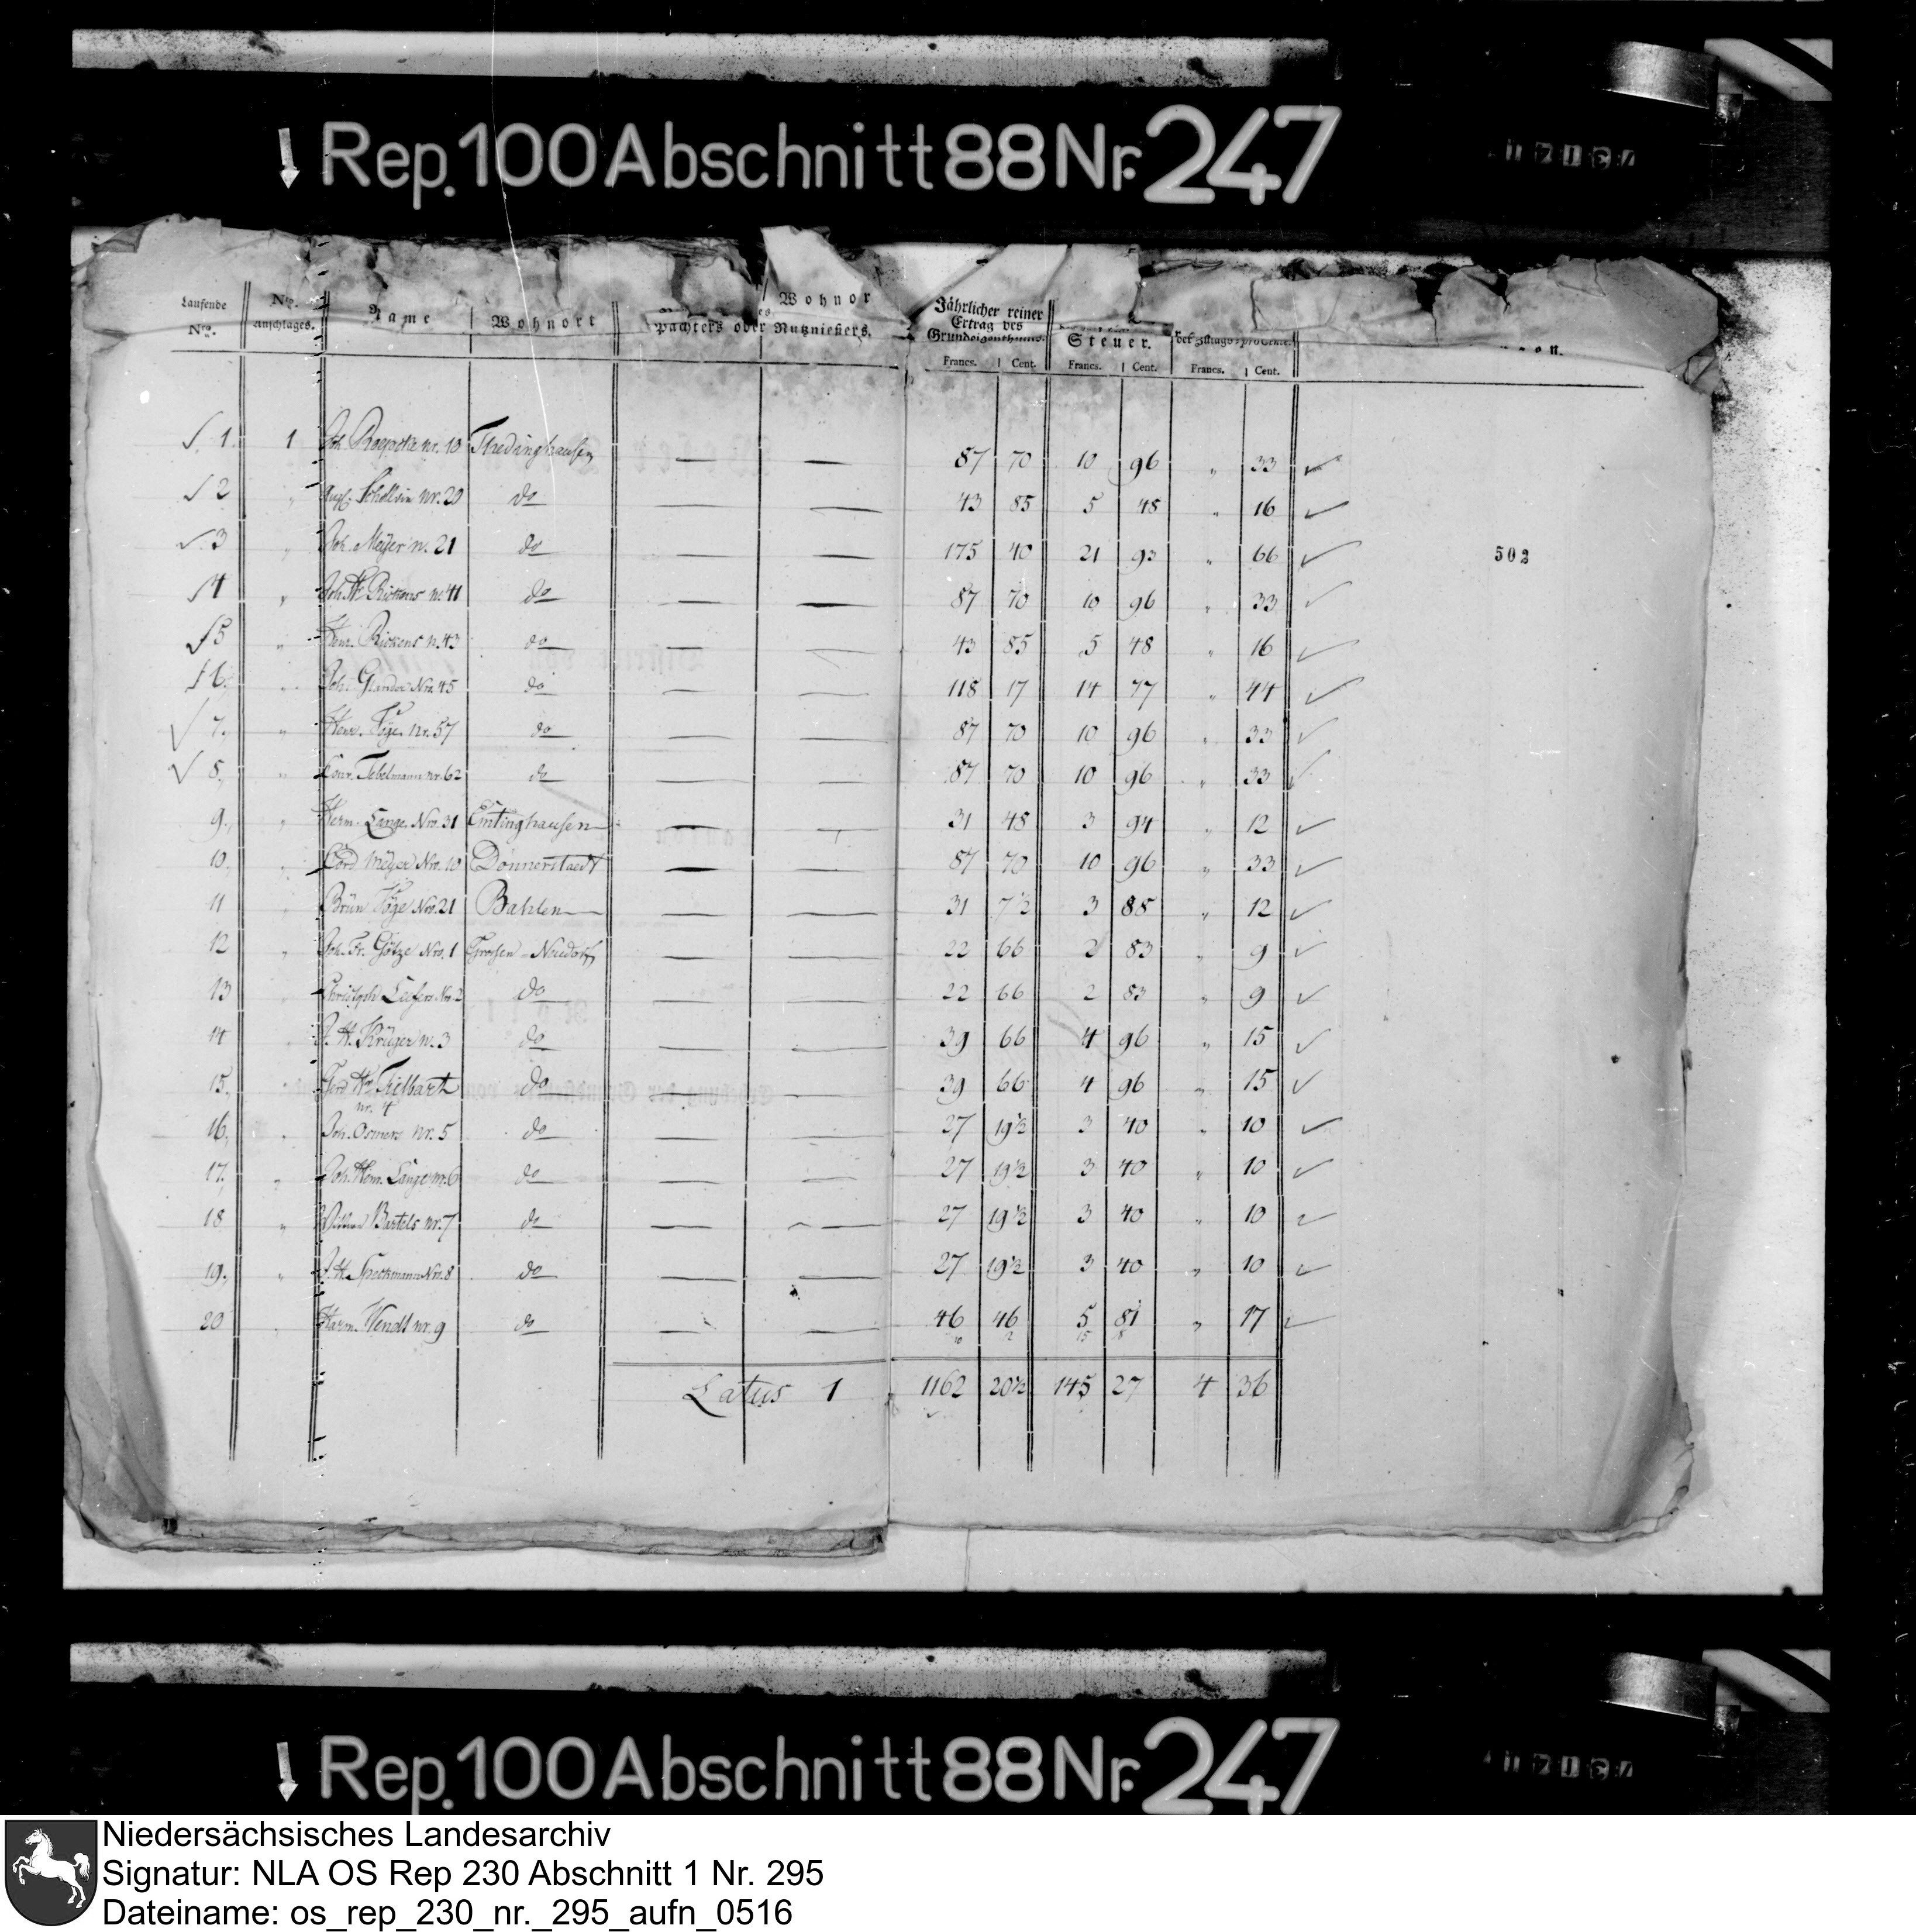 Rep. 100 Abschnitt 88 Nr. 247
Laufende Nro. Nro. Anschlages. Name Wohnort Wohnor
Pachters oder Nutznießers. Jährlicher reiner Ertrag des Grundeigenthums. Steuer.
Francs. Cent. Francs. Cent. Francs. Cent.
1. 1 Joh. nr. 10 Thedinghausen — — 87 70 10 96 " 33
2 " nr. 20 do — — 43 85 5 48 " 16
3 " Joh. Meÿer n. 21 do — — 175 40 21 93 " 66
502
4 " Joh. H. Rickens n. 41 do — — 87 70 10 96 " 33
5 " Henr. Rickens n. 43 do — — 43 85 5 48 " 16
6. " Joh. Nro. 45 do — — 118 17 14 77 " 44
7. " Henr. nr. 57 do — — 87 70 10 96 " 33
8. " Conr. Tebelmann nr. 62 do — — 87 70 10 96 " 33
9. " Herm. Lange Nro. 31 Emtinghausen — — 31 48 3 94 " 12
10. " Cord Meÿer Nro. 10 Donnerstaedt — — 87 70 10 96 " 33
11 " Brün Nro. 21 Bahlen — — 31 7½ 3 88 " 12
12 " Joh. Fr. Götze Nro. 1 — — 22 66 2 83 " 9
13 " Christoph Nro. 2 do — — 22 66 2 83 " 9
14 " J. H. Krüger n. 3 do — — 39 66 4 96 " 15
15. " do — — 39 66 4 96 " 15
nr. 4
16. " Joh. Osmers nr. 5 do — — 27 19½ 3 40 " 10
17. " Joh. Henr. Lange nr. 6 do — — 27 19½ 3 40 " 10
18 " Bartels nr. 7 do — — 27 19½ 3 40 " 10
19. " J. H. Speckmann Nro. 8 do — — 27 19½ 3 40 " 10
20 " Harm. Wendt nr. 9 do — — 46 46 5 81 " 17
Latus 1 1162 20½ 145 27 4 36
Rep. 100 Abschnitt 88 Nr. 247
Niedersächsisches Landesarchiv
Signatur: NLA OS Rep 230 Abschnitt 1 Nr. 295
Dateiname: os_rep_230_nr._295_aufn_0516